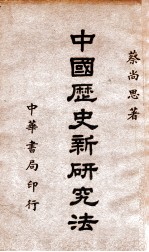 蔡尚思著
中國歷史新研究法
中華書局印行